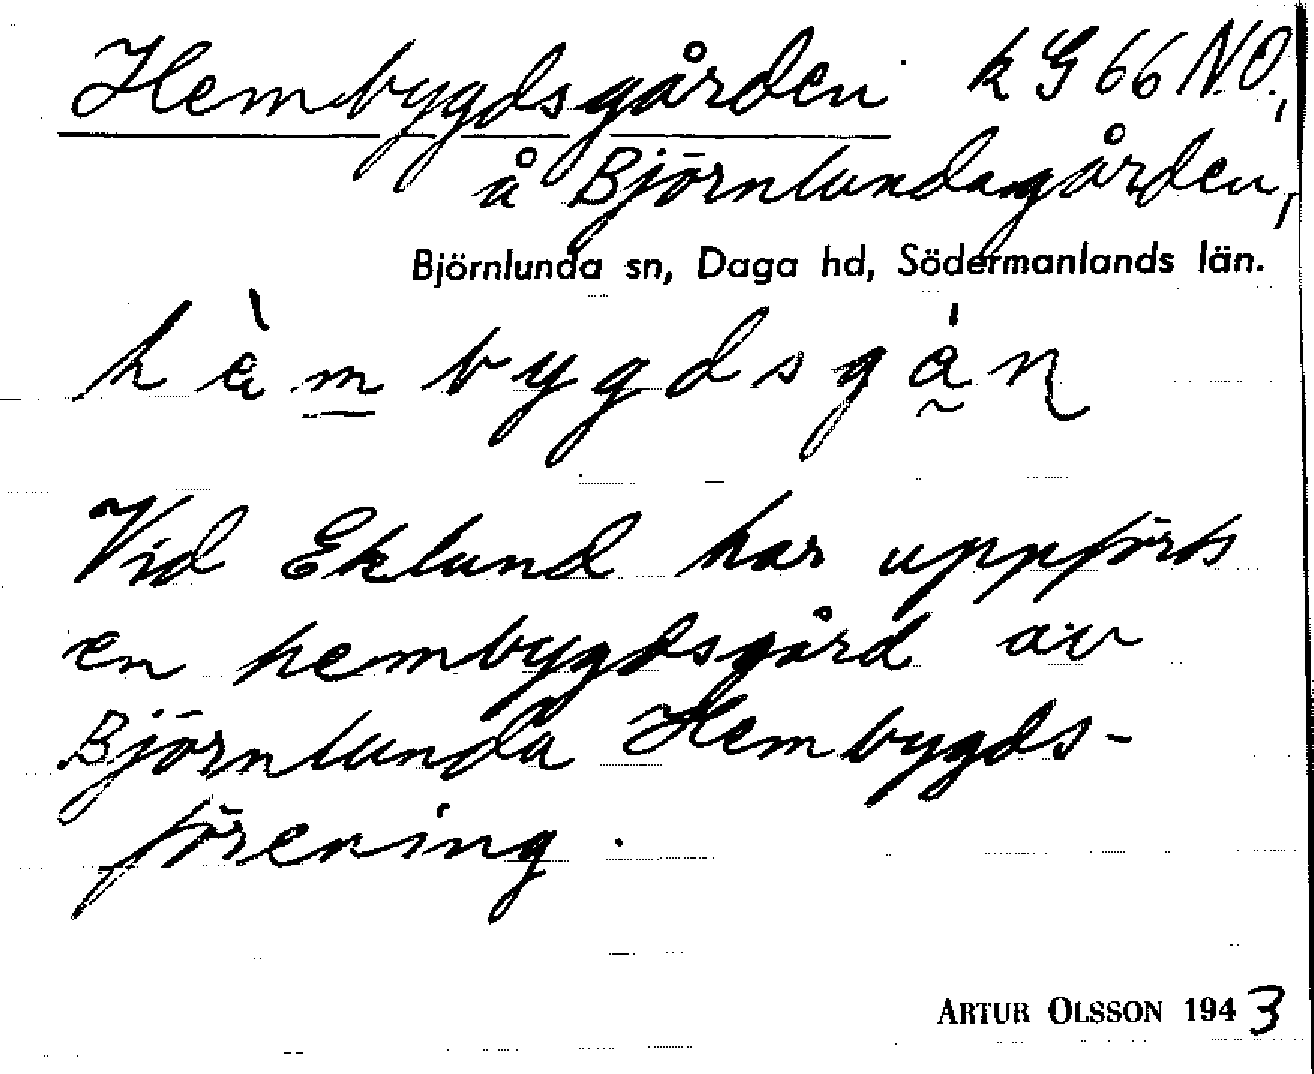 Hembygdsgården k G 66 N.O.,
å Björnlundagården,
Björnlunda sn, Daga hd, Södermanlands län.
hèm bygdsgån
Vid Eklund har uppförts
en hembygdsgård av
Björnlunda Hembygds-
förening.
ARTUR OLSSON 1943